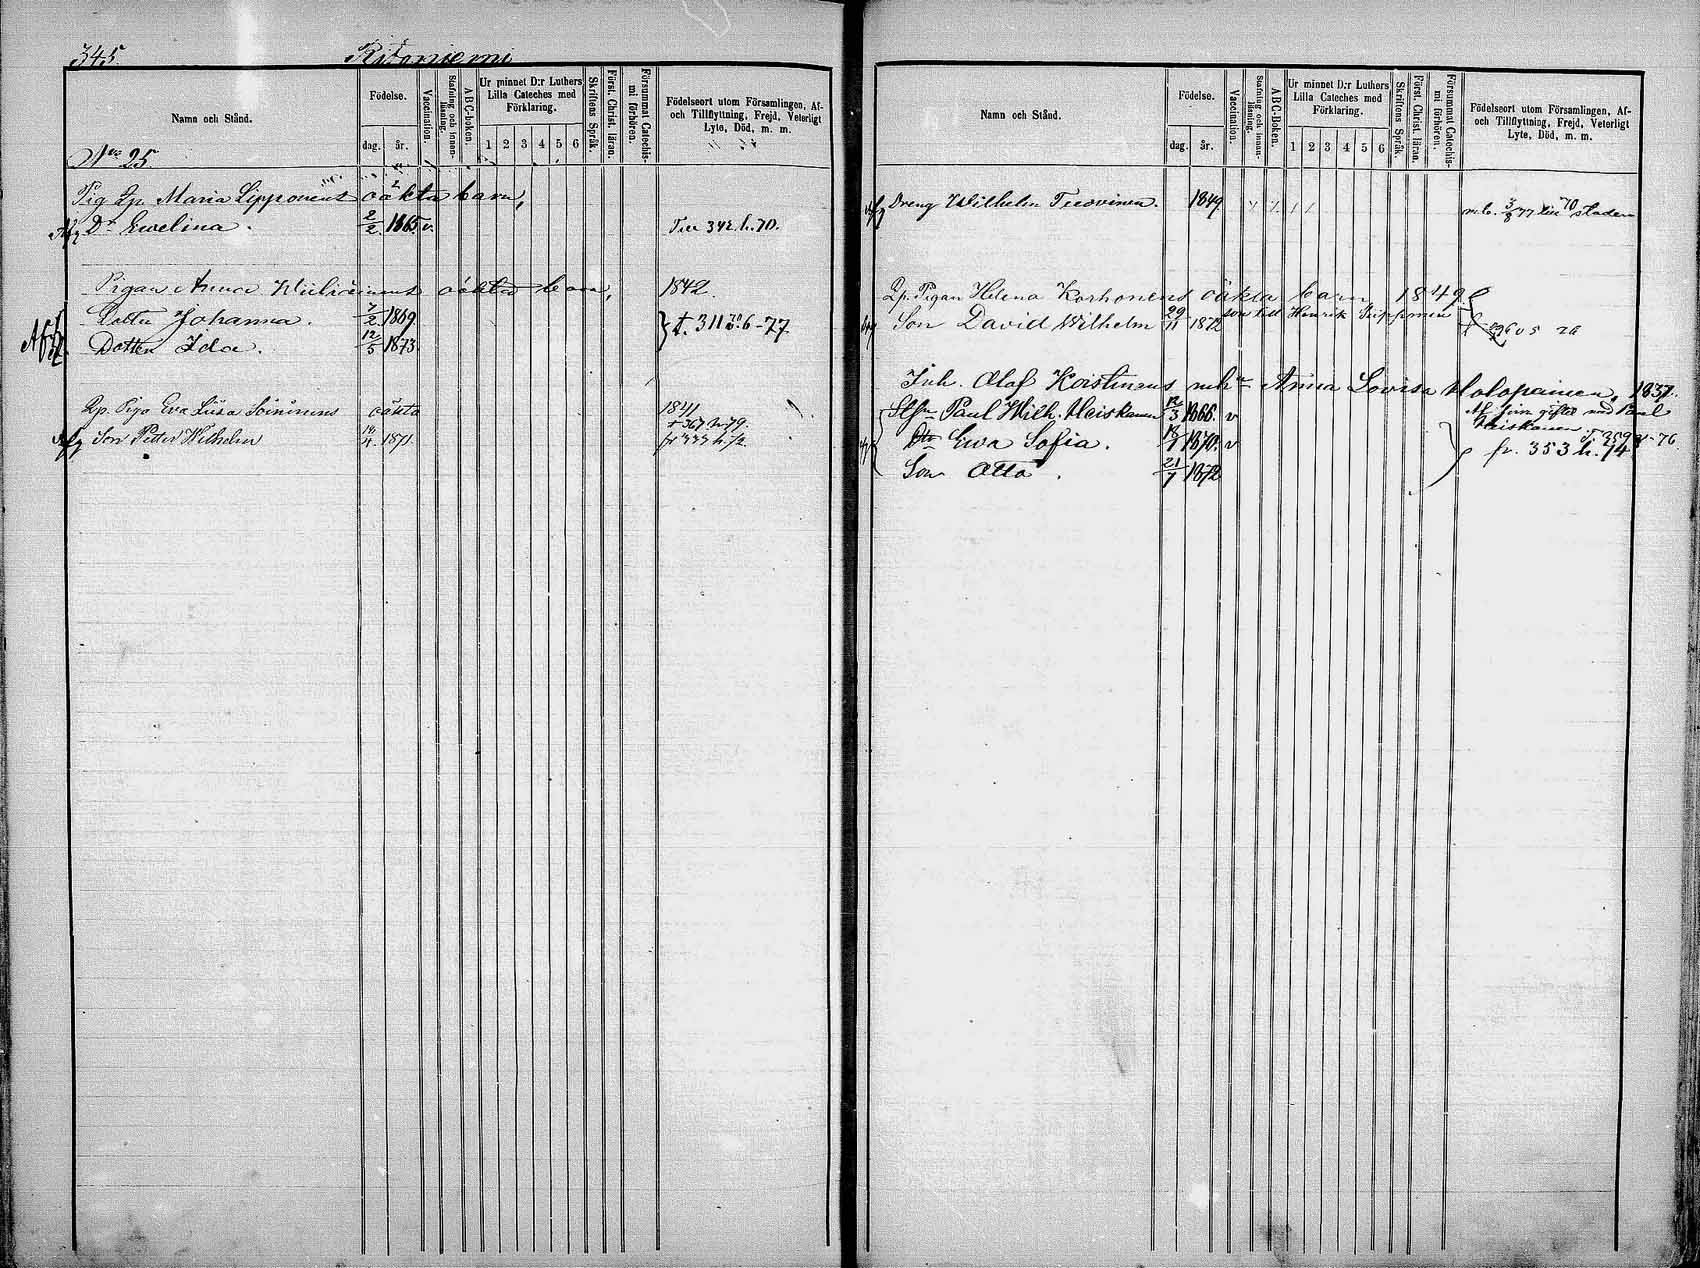 345. Ritoniemi
Namn och Stånd.
Födelse.
dag. år.
Vaccination.
Stafning och innan-läsning.
ABC-boken.
Ur minnet D:r Luthers Lilla Cateches med Förklaring.
1 2 3 4 5 6
Skriftens Språk.
Först. Christ. läran.
Försummat Catechis-mi förhören.
Födelseort utom Församlingen, Af-
och Tillflyttning, Frejd, Veterligt
Lyte, Död, m. m.
No 25
Pig Lp. Maria Lipponens oäkta barn,
Dr Ewelina. 2/2 1865 v. Till 342. h. 70.
Pigan Anna oäkta barn, 1842.
Dotter Johanna. 7/2 1869
Dotter Ida. 12/5 1873 t. 311 6-77.
Lp. Piga Eva Liisa Soininens oäkta 1841
Son Petter Wilhelm 18/4 1871. t 367 79.
Namn och Stånd.
Födelse.
dag. år.
Vaccination.
Stafning och innan-läsning.
ABC-boken.
Ur minnet D:r Luthers Lilla Cateches med Förklaring.
1 2 3 4 5 6
Skriftens Språk.
Först. Christ. läran.
Försummat Catechis-mi förhören.
Födelseort utom Församlingen, Af-
och Tillflyttning, Frejd, Veterligt
Lyte, Död, m. m.
Dreng Wilhelm 1849 m. b. 3/8 77 till staden
Lp. Pigan Helena Korhonens oäkta barn, 1849
Son David Wilhelm 29/11 1872 son till Henrik
Inh. Olof Koistinens Anna Lovisa Holopainen, 1837.
Paul Wilh. Heiskanen 12/3 1866. v Af sin giftes med Paul Heiskanen
Dtr Ewa Sofia. 18/7 1870. v t. 359 76
Son Otto. 21/7 1872 fr. 353 h. 74